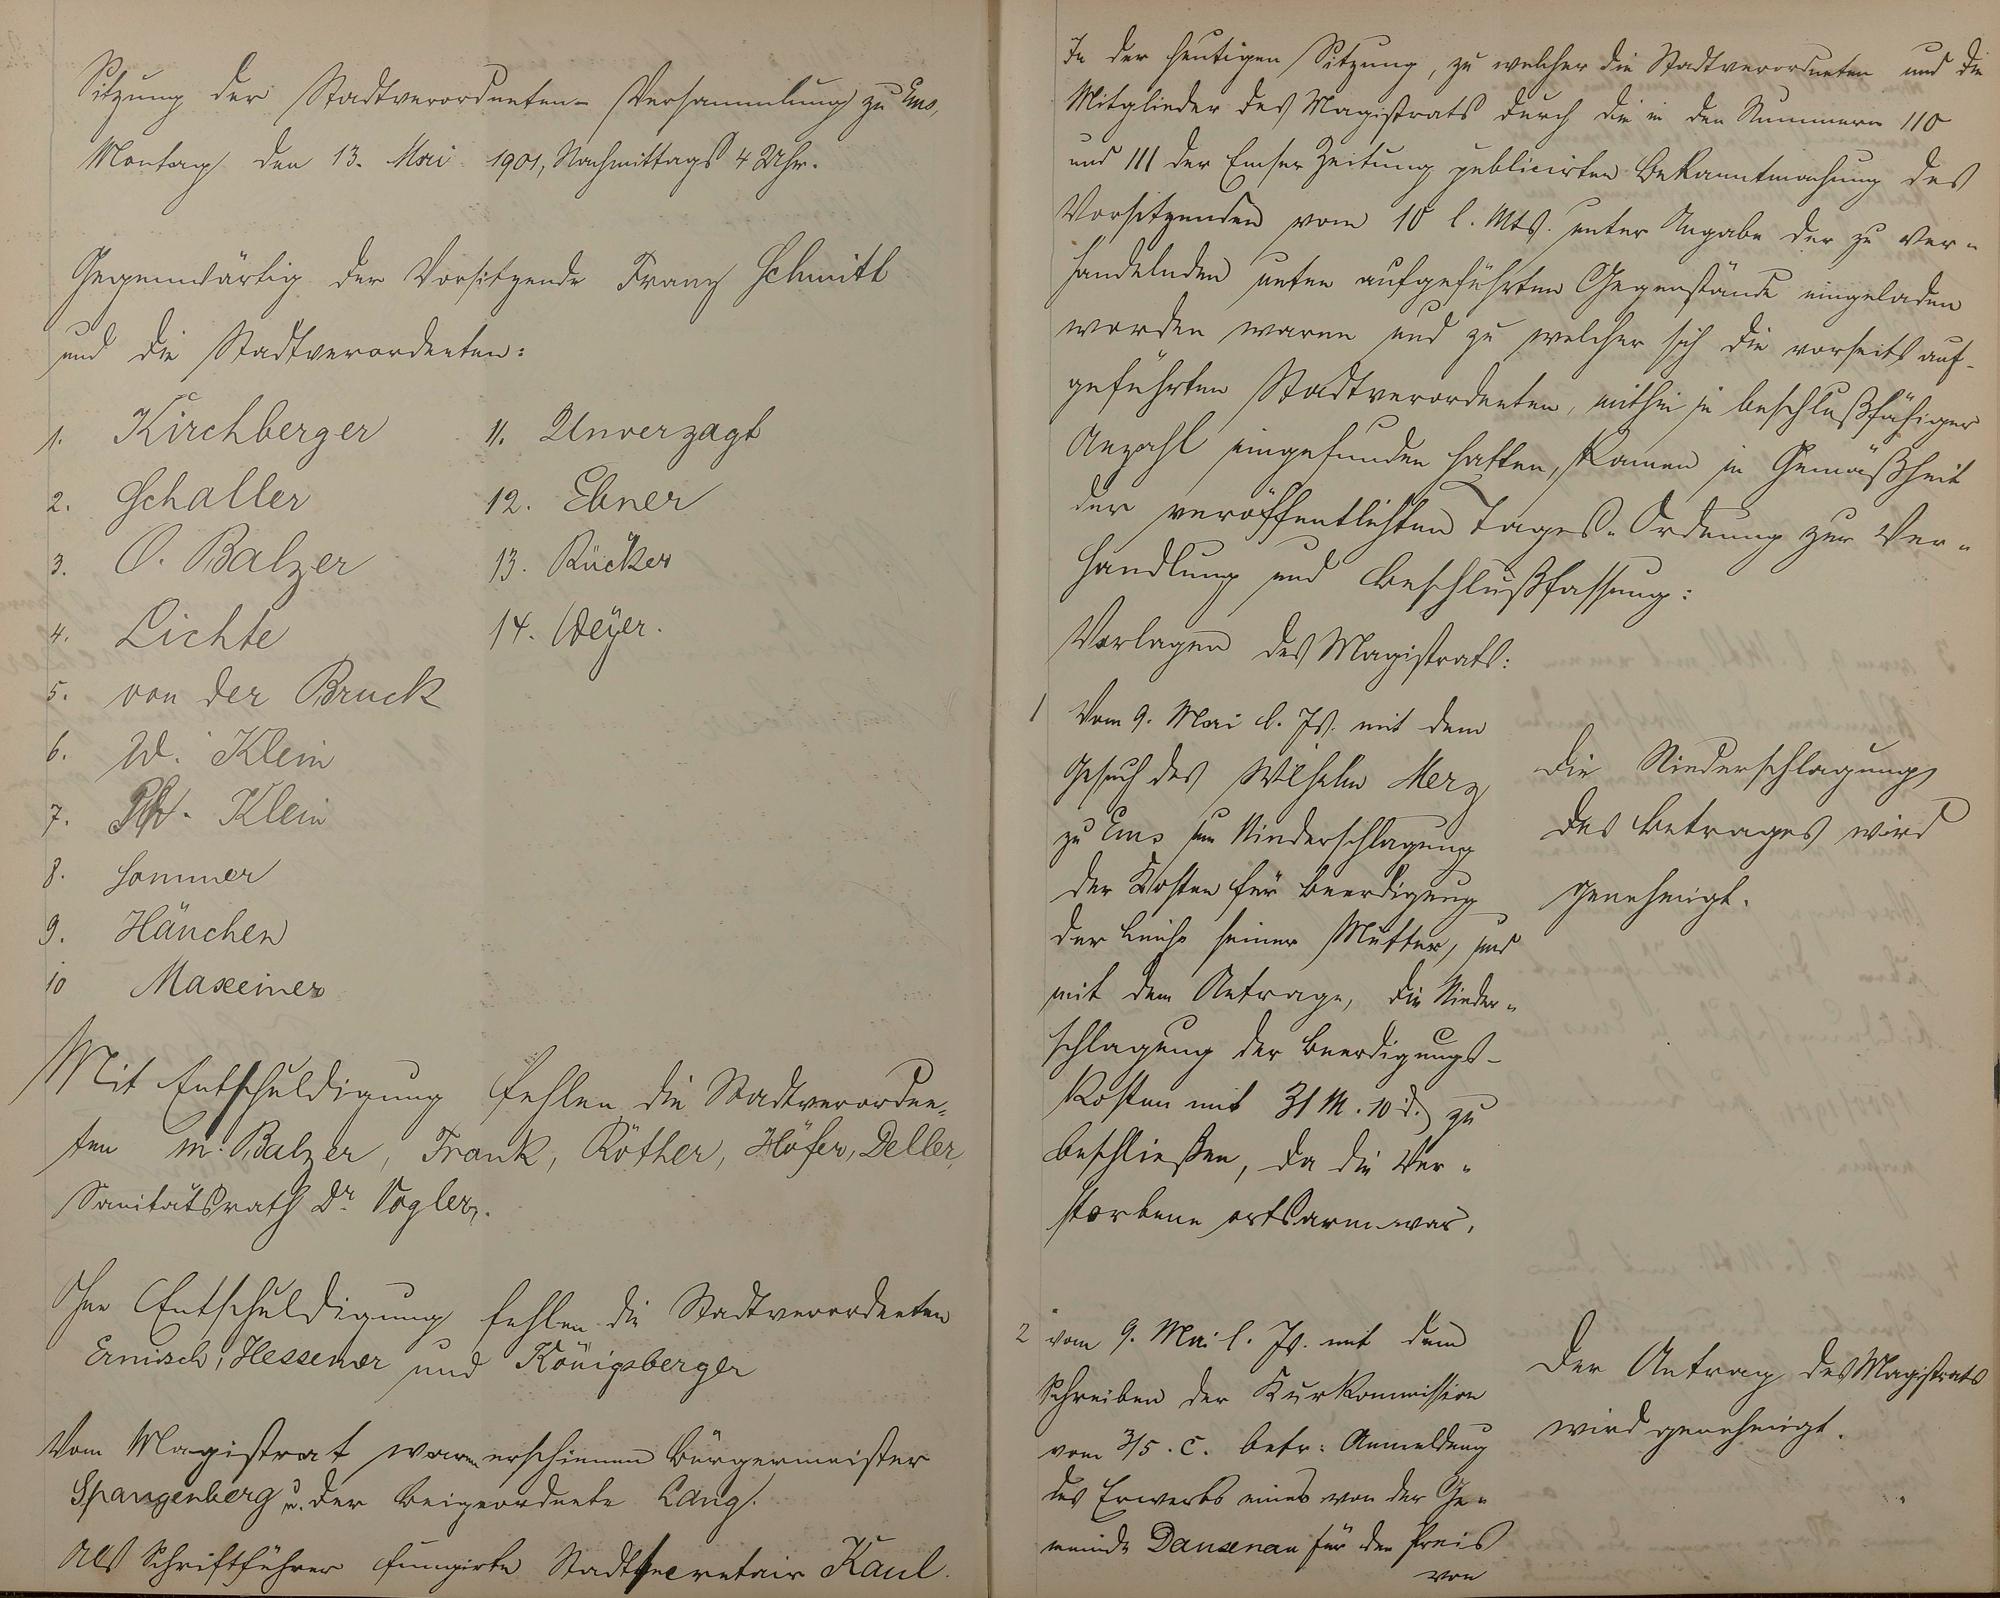 Sitzung der Stadtverordneten-Versammlung zu Ems,
Montag den 13. Mai 1901, Nachmittags 4 Uhr.
Gegenwärtig der Vorsitzende Franz Schmitt
und die Stadtverordneten:
1. Kirchberger
2. Schaller
3. O. Balzer
4. Lichte
5. von der Bruck
6. W. Klein
7. Ph. Klein
8. Sommer
9. Hänchen
10 Maxeiner
11. Unverzagt
12. Ebner
13. Rücker
14. Weyer.
Mit Entschuldigung fehlen die Stadtverordne-
ten M. Balzer, Frank, Röther, Höfer, Deller,
Sanitätsrath Dr. Vogler.
Ohne Entschuldigung fehlen die Stadtverordneten
Ernisch, Hessemer und Königsberger
Vom Magistrat waren erschienen Bürgermeister
Spangenberg u. der Beigeordnete Lang.
Als Schriftführer fungirte Stadtsecretair Kaul.
In der heutigen Sitzung, zu welcher die Stadtverordneten und die
Mitglieder des Magistrats durch die in den Nummern 110
und 111 der Emser Zeitung publicirten Bekanntmachung des
Vorsitzenden vom 10 l. Mts. unter Angabe der zu ver-
handelnden unten aufgeführten Gegenstände eingeladen
worden waren und zu welcher sich die vorseits auf-
geführten Stadtverordneten, mithin in beschlußfähiger
Anzahl eingefunden hatten, kamen in Gemäßheit
der veröffentlichten Tages-Ordnung zur Ver-
handlung und Beschlußfassung:
Vorlagen des Magistrats:
1 Vom 9. Mai l. Js. mit dem
Gesuch des Wilhelm Merz
zu Ems um Niederschlagung
der Kosten für Beerdigung
der Leiche seiner Mutter, und
mit dem Antrage, die Nieder-
schlagung der Beerdigungs-
kosten mit 31 M. 10 d. zu
beschließen, da die Ver-
storbene ortsarm war.
Die Niederschlagung
des Betrages wird
genehmigt.
2 vom 9. Mai l. Js. mit dem
Schreiben der Kurkommission
vom 3/5. c. betr: Anmeldung
des Erwerbs eines von der Ge-
meinde Dausenau für den Preis
von
Der Antrag des Magistrats
wird genehmigt.